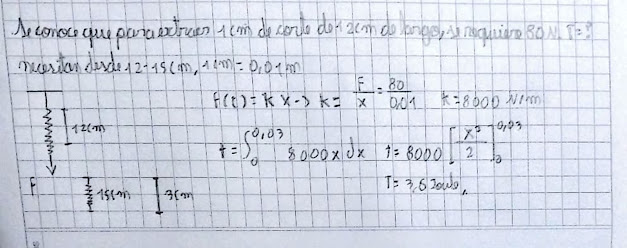 Se conoce que para extraer 1cm de corte de 12cm de largo, se requiere 80 N. T=?
necesitan desde 12-15cm, 1cm = 0,01m
f(t) = k x -> k = F/x = 80/0,01 k = 8000 N/m
12cm
t = ∫₀^0,03 8000x dx t = 8000 [x²/2]₀^0,03
F 15cm 3cm T = 3,6 Joule,